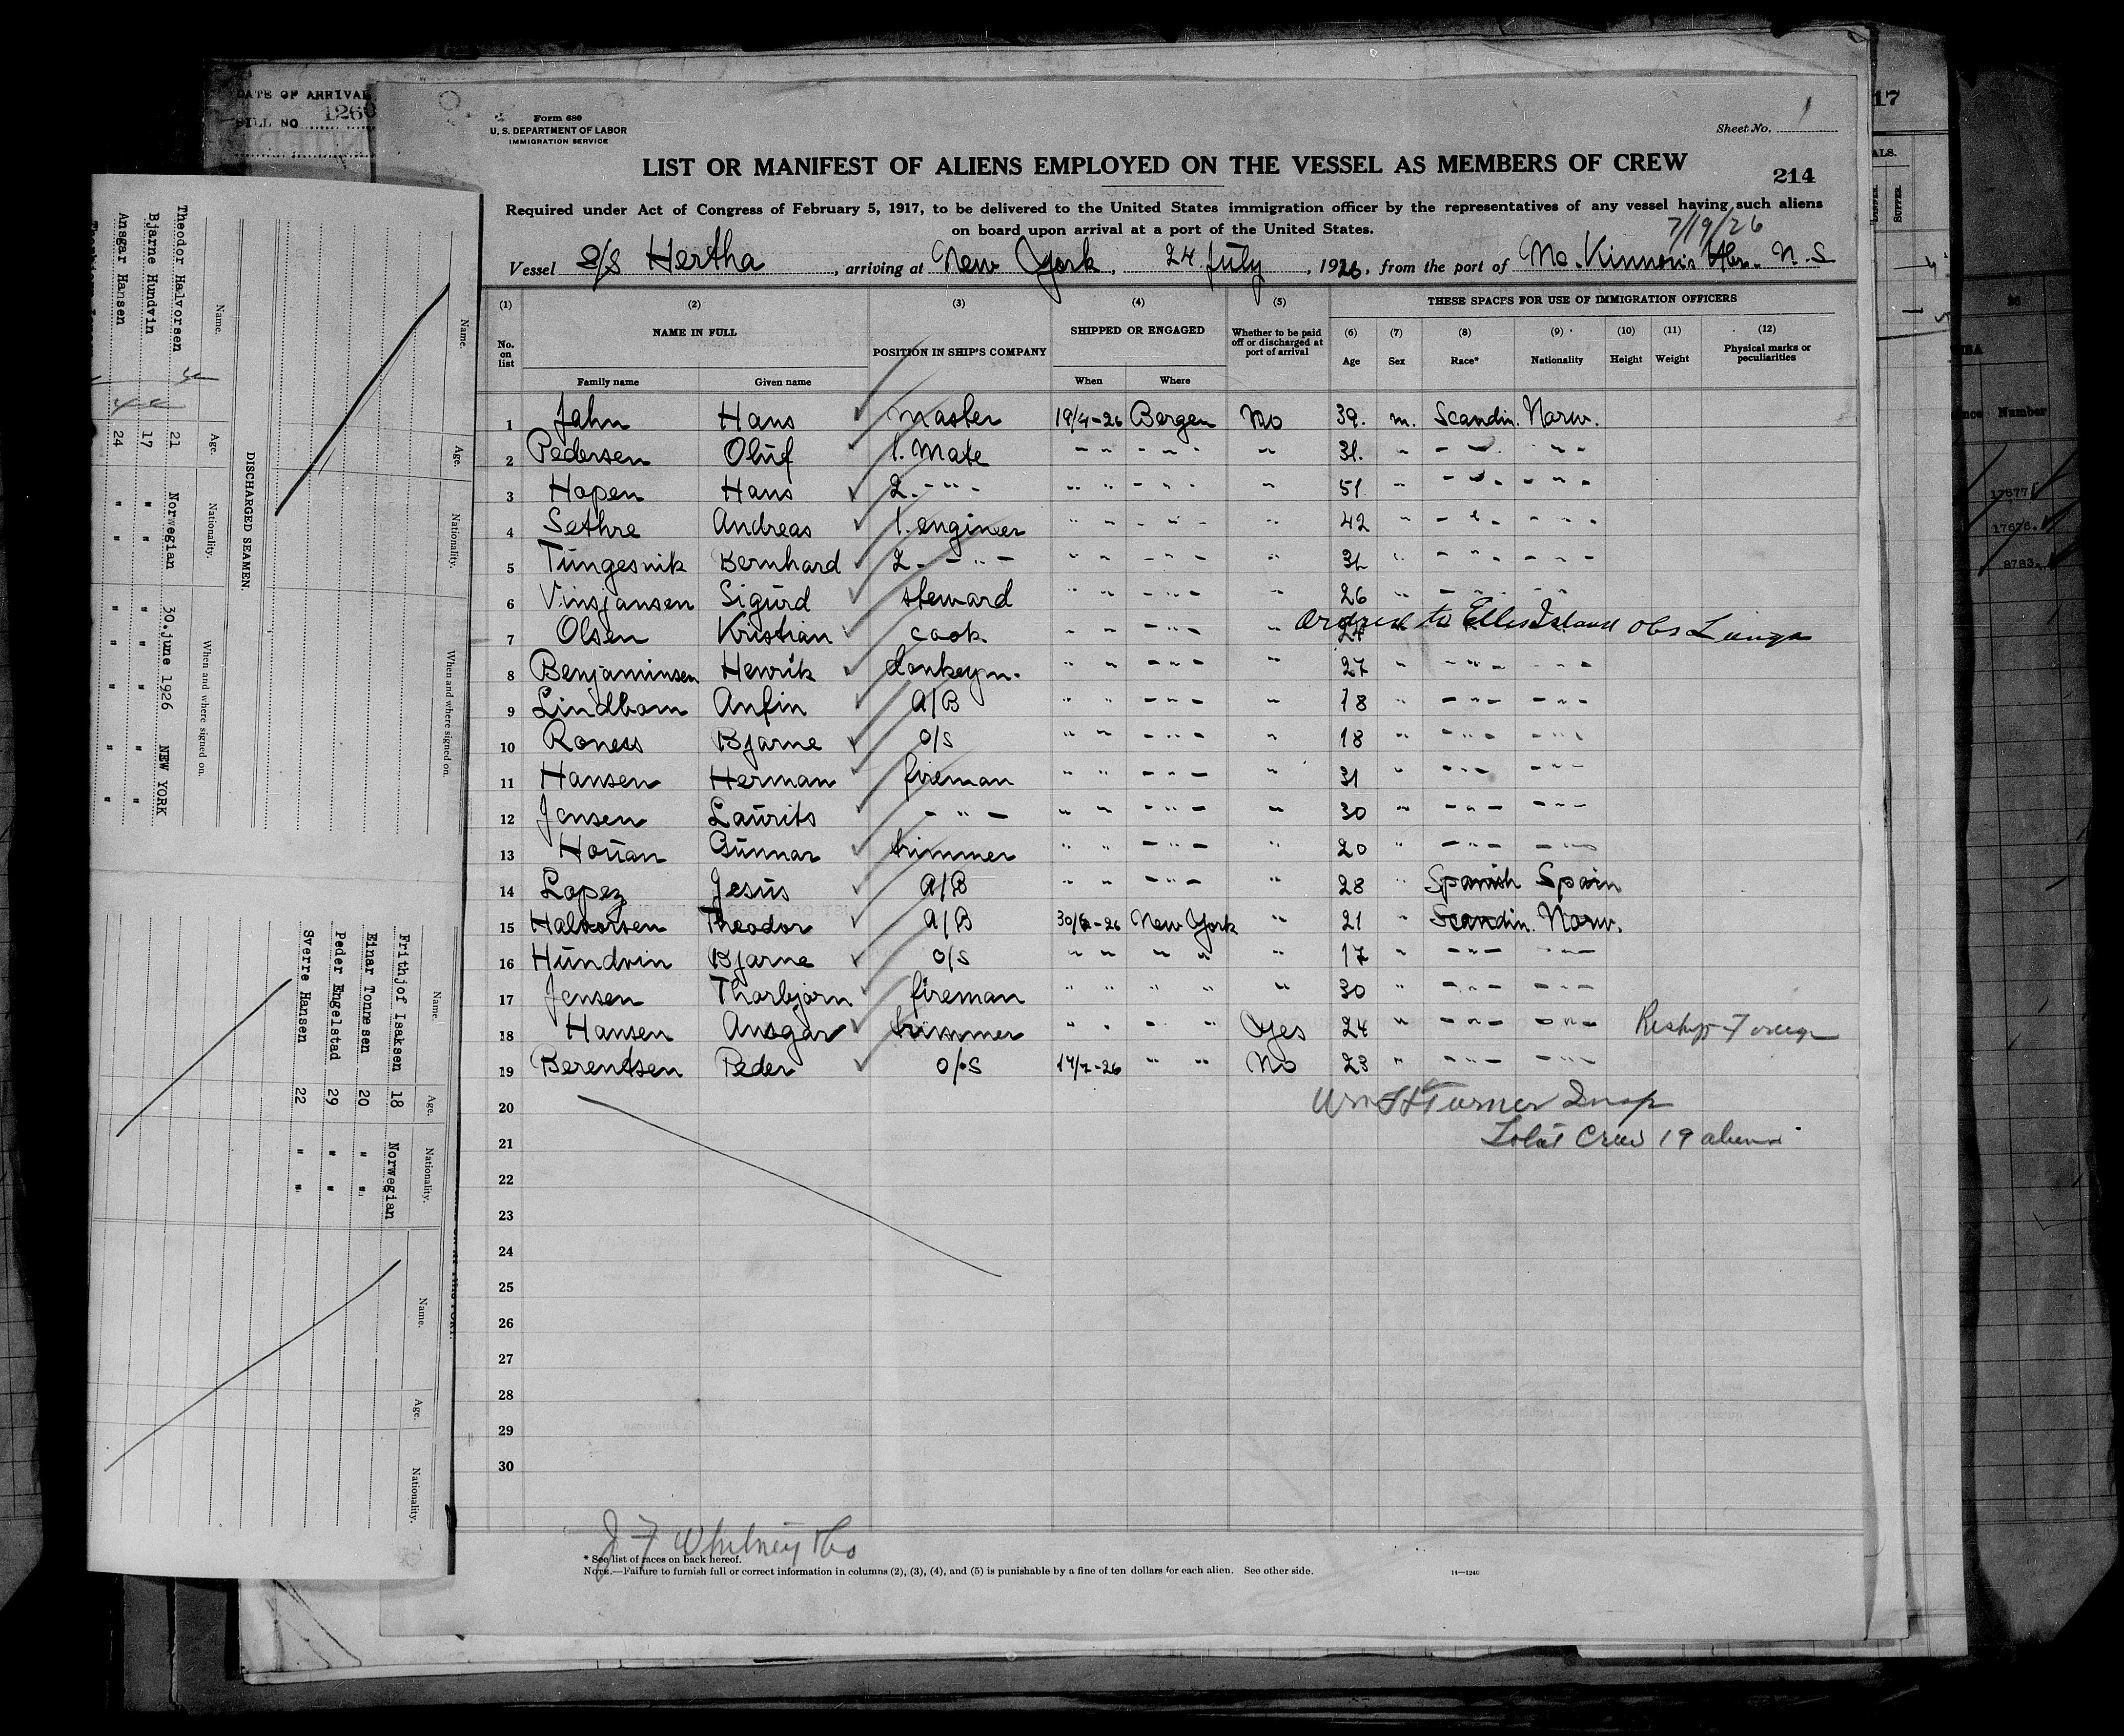 DATE OF ARRIVAL
BILL NO 1260
Form 680
U. S. DEPARTMENT OF LABOR
IMMIGRATION SERVICE
Sheet No. 1
LIST OR MANIFEST OF ALIENS EMPLOYED ON THE VESSEL AS MEMBERS OF CREW
214
Required under Act of Congress of February 5, 1917, to be delivered to the United States immigration officer by the representatives of any vessel having such aliens
on board upon arrival at a port of the United States.
7/19/26
Vessel S/S Hertha, arriving at New York, 24 July, 1926, from the port of Mc. Kinnons Hbr. N.S
(1) (2) (3) (4) (5) THESE SPACES FOR USE OF IMMIGRATION OFFICERS
No. on list NAME IN FULL POSITION IN SHIP'S COMPANY SHIPPED OR ENGAGED Whether to be paid off or discharged at port of arrival (6) Age (7) Sex (8) Race* (9) Nationality (10) Height (11) Weight (12) Physical marks or peculiarities
Family name Given name When Where
1 Jahn Hans Master 19/4-26 Bergen No 39. m. Scandin. Norw.
2 Pedersen Oluf 1. Mate - " - " - " 31. " - " - " -
3 Hopen Hans 2. - " - " " - " - " 51 " - " - - " -
4 Sethre Andreas 1. engineer " " - " - " 42 " - " - - " -
5 Tungesvik Bernhard 2. - " - " " - " - " " - " - - " -
6 Vinsjansen Sigurd steward " " - " - " 26 " - " - " "
7 Olsen Kristian cook " " - " - " 24 Ordred to Ellis Island obs Lungs
8 Benjaminsen Henrik donkeym. " " - " - " 27 " - " - - " -
9 Lindbom Anfin A/B " " - " - " 18 " - " - - " -
10 Roness Bjarne O/S " " - " - " 18 " - " - - " -
11 Hansen Herman fireman " " - " - " 31 " - " - - " -
12 Jensen Laurits - " - " " - " - " 30 " - " - - " -
13 Houan Gunnar trimmer " " - " - " 20 " - " - - " -
14 Lopez Jesus A/B " " - " - " 28 " Spanish Spain
15 Halvorsen Theodor A/B 30/6-26 New York " 21 " Scandin. Norw.
16 Hundvin Bjarne O/S " " " " " 17 " - " - - " -
17 Jensen Thorbjørn fireman " " " " " 30 " - " - - " -
18 Hansen Ansgar trimmer " " " " Yes 24 " - " - - " - Reship Foreign
19 Berentsen Peder O/S 17/7-26 " " No 23 " - " - - " -
20 Wm H Turner Insp
21 Total Crew 19 aliens
22
23
24
25
26
27
28
29
30
J F Whitney & Co
* See list of races on back hereof.
NOTE.—Failure to furnish full or correct information in columns (2), (3), (4), and (5) is punishable by a fine of ten dollars for each alien. See other side.
14—1240
Name. Age. Nationality. When and where signed on.
DISCHARGED SEAMEN.
Name. Age. Nationality. When and where signed on.
Theodor Halvorsen 21 Norwegian 30.june 1926 NEW YORK
Bjarne Hundvin 17 " " " " " "
Ansgar Hansen 24 " " " " " "
Name. Age. Nationality. Name. Age. Nationality.
Frithjof Isaksen 18 Norwegian
Einar Tonnesen 20 " "
Peder Engelstad 29 " "
Sverre Hansen 22 " "
17
Number
17677
17676.
8783.